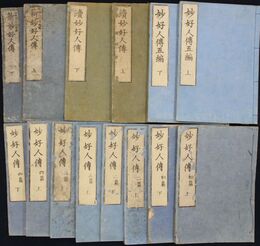 妙好人傳五編 上
妙好人傳五編 下
續妙好人傳 上
續妙好人傳 下
妙好人傳 上
妙好人傳 下
妙好人傳 初篇 上
妙好人傳 初篇 下
妙好人傳
妙好人傳 篇
妙好人傳 上
妙好人傳 篇
妙好人傳 四篇 上
妙好人傳 四篇 下